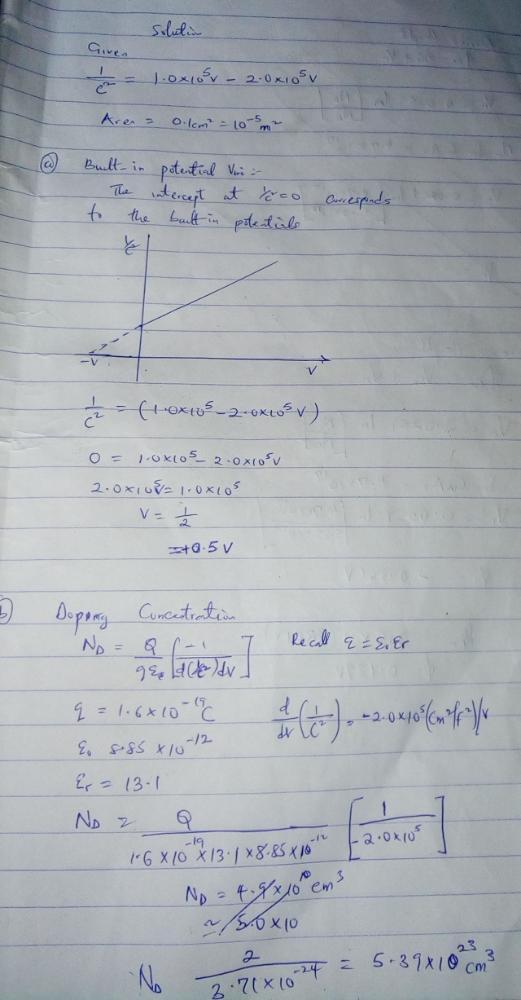 Solution
Given
1/c² = 1.0×10⁵v - 2.0×10⁵v
Area = 0.1cm² = 10⁻⁵m²
(a) Built-in potential Vbi :-
The intercept at 1/c² = 0 corresponds
to the built in potentials
1/c²
-V
V
1/c² = (1.0×10⁵ - 2.0×10⁵ V)
0 = 1.0×10⁵ - 2.0×10⁵V
2.0×10⁵V = 1.0×10⁵
V = 1/2
=+0.5 V
b) Doping Concentration
N_D = Q/qε₀ [-1/d(1/c²)dv] Recall ε = ε₀εr
q = 1.6×10⁻¹⁹C d/dv (1/c²) = -2.0×10⁵(cm²/f²)/v
ε₀ 8.85 ×10⁻¹²
εr = 13.1
N_D = Q/1.6×10⁻¹⁹×13.1×8.85×10⁻¹² [1/-2.0×10⁵]
N_D = 4.9×10¹⁰cm³
≈ 5.0×10
N_D 2/3.71×10⁻²⁴ = 5.39×10²³cm³